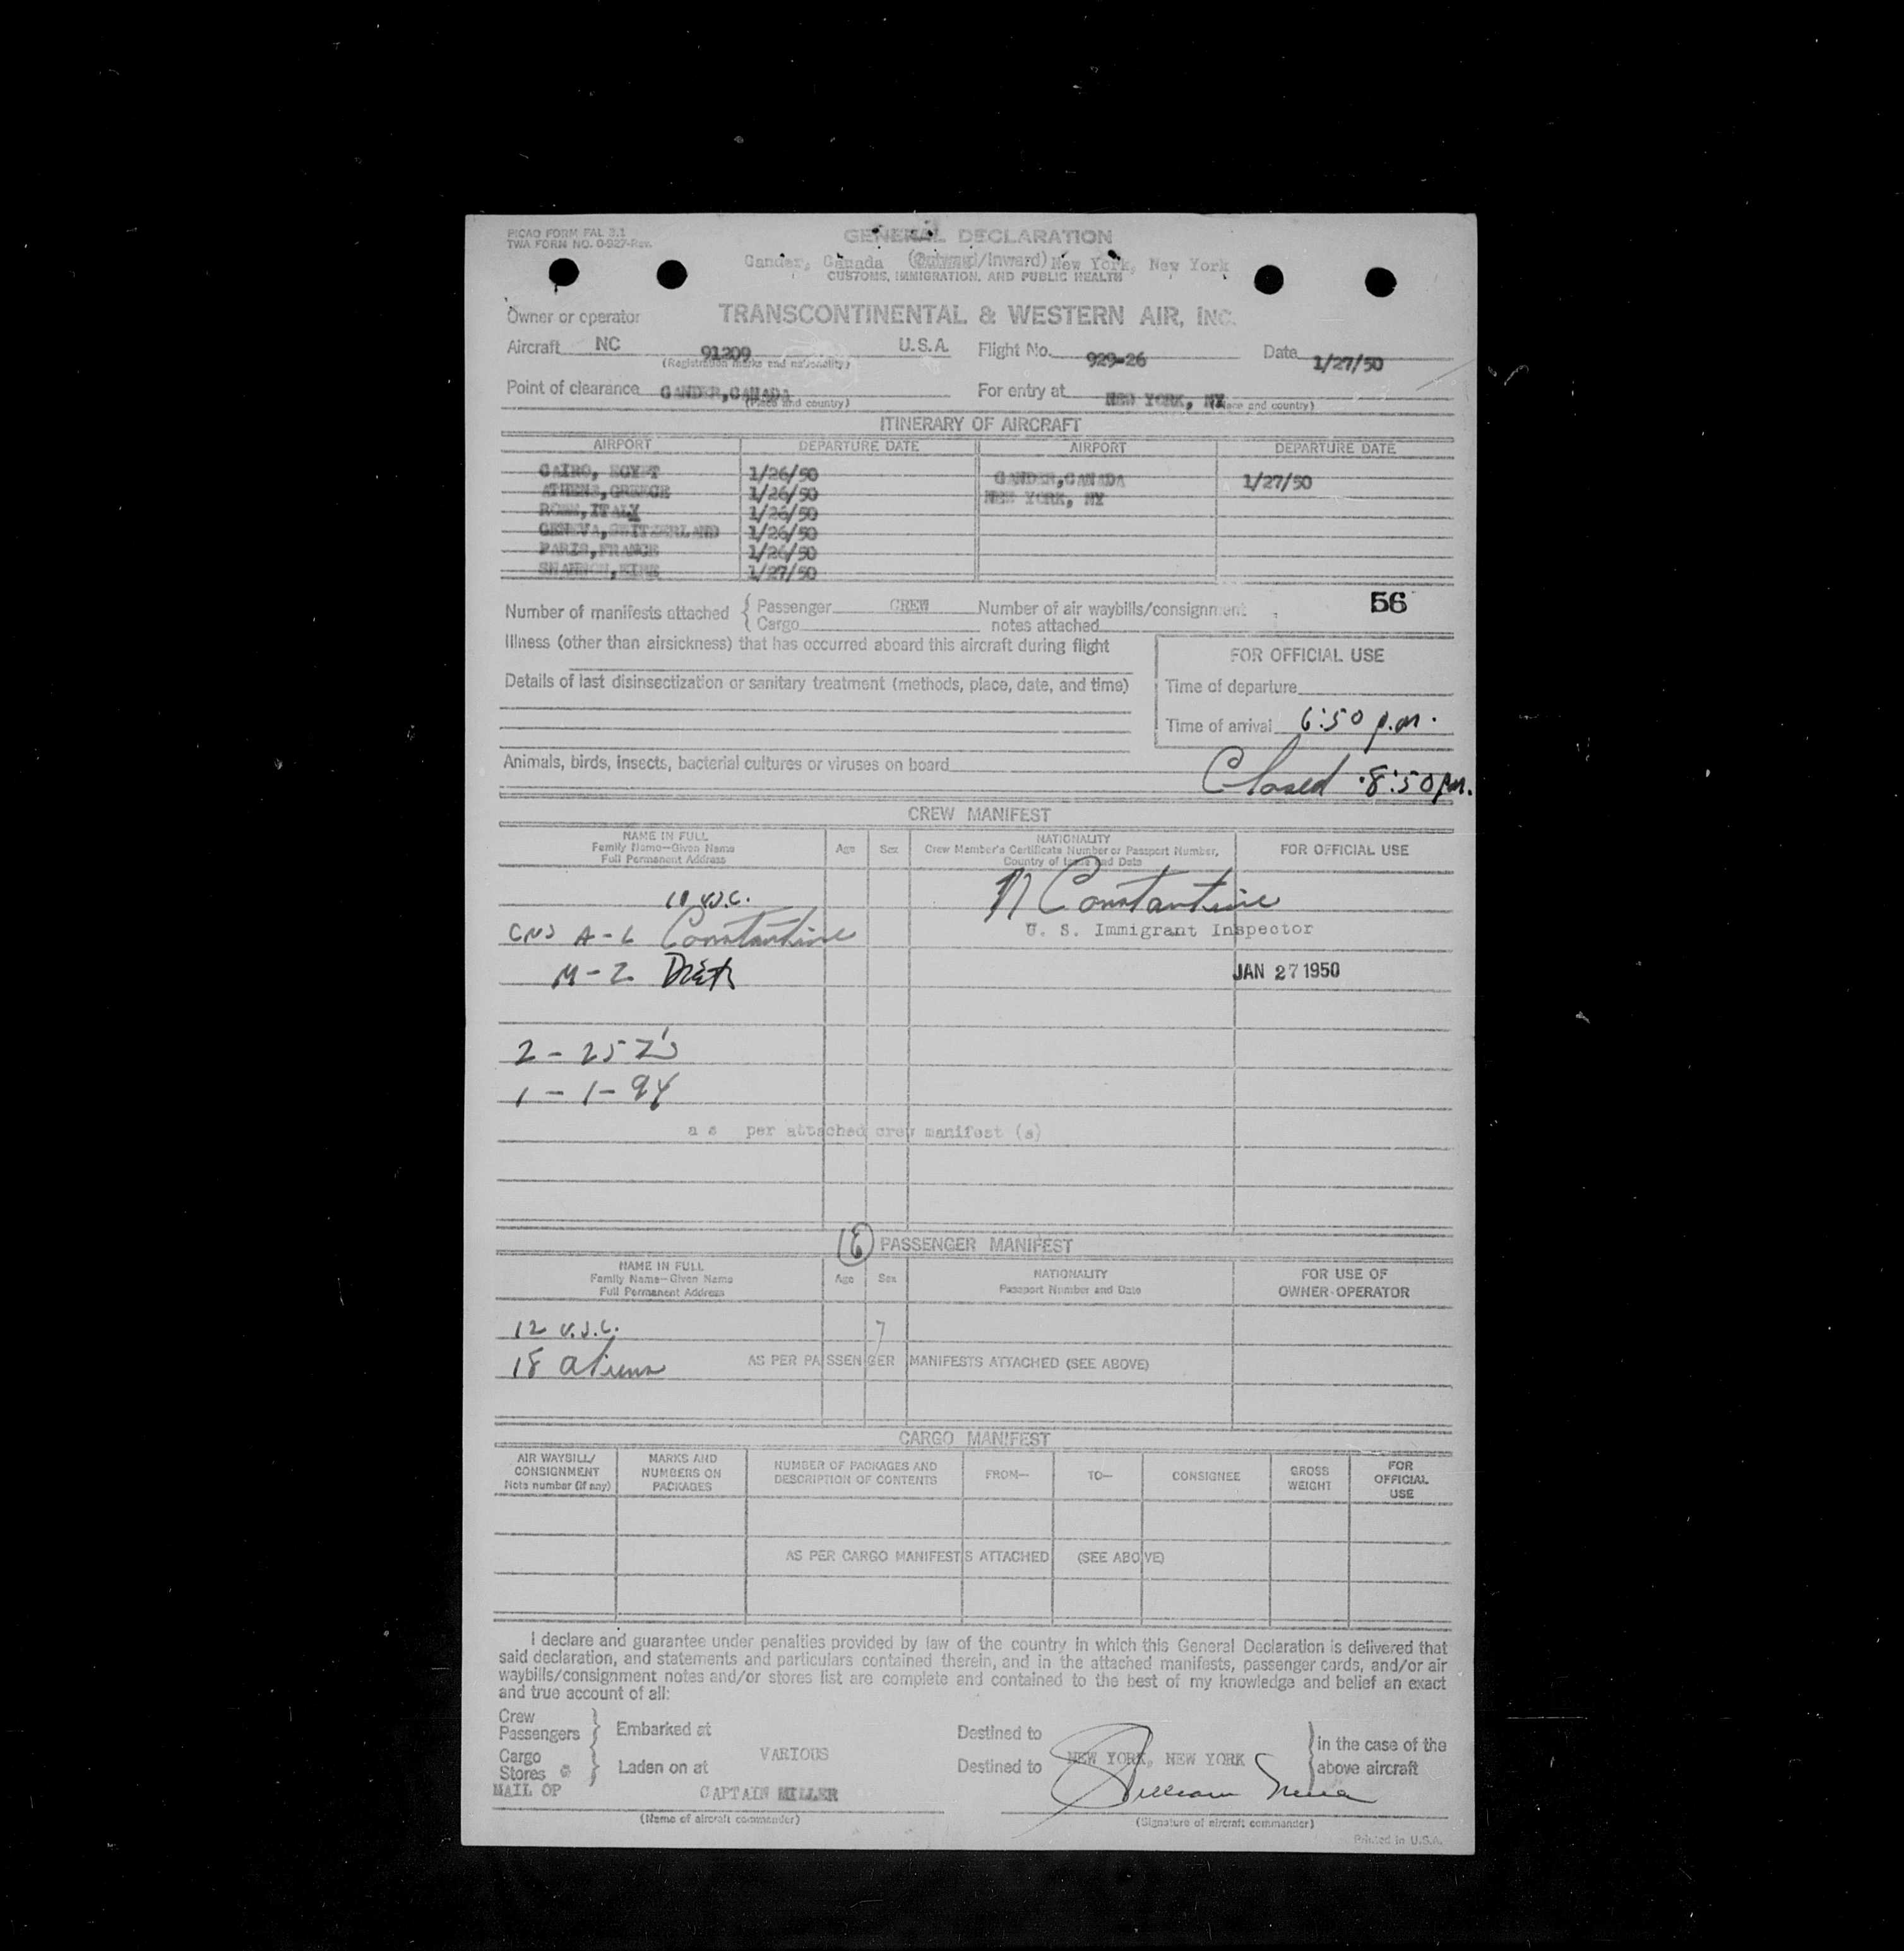 PICAO FORM FAL 3.1
TWA FORM NO. 0-927-Rev.
GENERAL DECLARATION
Gander, Canada (Outward/Inward) New York, New York
CUSTOMS, IMMIGRATION, AND PUBLIC HEALTH
Owner or operator TRANSCONTINENTAL & WESTERN AIR, INC.
Aircraft NC 91209 U.S.A. Flight No. 929-26 Date 1/27/50
(Registration marks and nationality)
Point of clearance GANDER,CANADA For entry at NEW YORK, NY
(Place and country) (Place and country)
ITINERARY OF AIRCRAFT
AIRPORT DEPARTURE DATE AIRPORT DEPARTURE DATE
CAIRO, EGYPT 1/26/50 GANDER,CANADA 1/27/50
ATHENS,GREECE 1/26/50 NEW YORK, NY
ROME,ITALY 1/26/50
GENEVA,SWITZERLAND 1/26/50
PARIS,FRANCE 1/26/50
SHANNON,EIRE 1/27/50
56
Number of manifests attached { Passenger CREW Number of air waybills/consignment
{ Cargo notes attached
Illness (other than airsickness) that has occurred aboard this aircraft during flight
FOR OFFICIAL USE
Details of last disinsectization or sanitary treatment (methods, place, date, and time)
Time of departure
Time of arrival 6:50 p.m.
Animals, birds, insects, bacterial cultures or viruses on board
Closed 8:50 pm.
CREW MANIFEST
NAME IN FULL
Family Name—Given Name
Full Permanent Address
Age Sex
NATIONALITY
Crew Member's Certificate Number or Passport Number,
Country of Issue and Date
FOR OFFICIAL USE
10 U.S.C.
N Constantine
U. S. Immigrant Inspector
A-L Constantine
M-Z
JAN 27 1950
2 - 257's
1 - 1-94
a s per attached crew manifest (s)
PASSENGER MANIFEST
NAME IN FULL
Family Name—Given Name
Full Permanent Address
Age Sex
NATIONALITY
Passport Number and Date
FOR USE OF
OWNER-OPERATOR
12 U.S.C.
18 aliens AS PER PASSENGER MANIFESTS ATTACHED (SEE ABOVE)
CARGO MANIFEST
AIR WAYBILL/
CONSIGNMENT
Note number (if any)
MARKS AND
NUMBERS ON
PACKAGES
NUMBER OF PACKAGES AND
DESCRIPTION OF CONTENTS
FROM—
TO—
CONSIGNEE
GROSS
WEIGHT
FOR
OFFICIAL
USE
AS PER CARGO MANIFESTS ATTACHED (SEE ABOVE)
I declare and guarantee under penalties provided by law of the country in which this General Declaration is delivered that
said declaration, and statements and particulars contained therein, and in the attached manifests, passenger cards, and/or air
waybills/consignment notes and/or stores list are complete and contained to the best of my knowledge and belief an exact
and true account of all:
Crew
Passengers } Embarked at Destined to
Cargo
Stores } Laden on at VARIOUS Destined to NEW YORK, NEW YORK
in the case of the
above aircraft
MAIL OP CAPTAIN MILLER William
(Name of aircraft commander) (Signature of aircraft commander)
Printed in U.S.A.